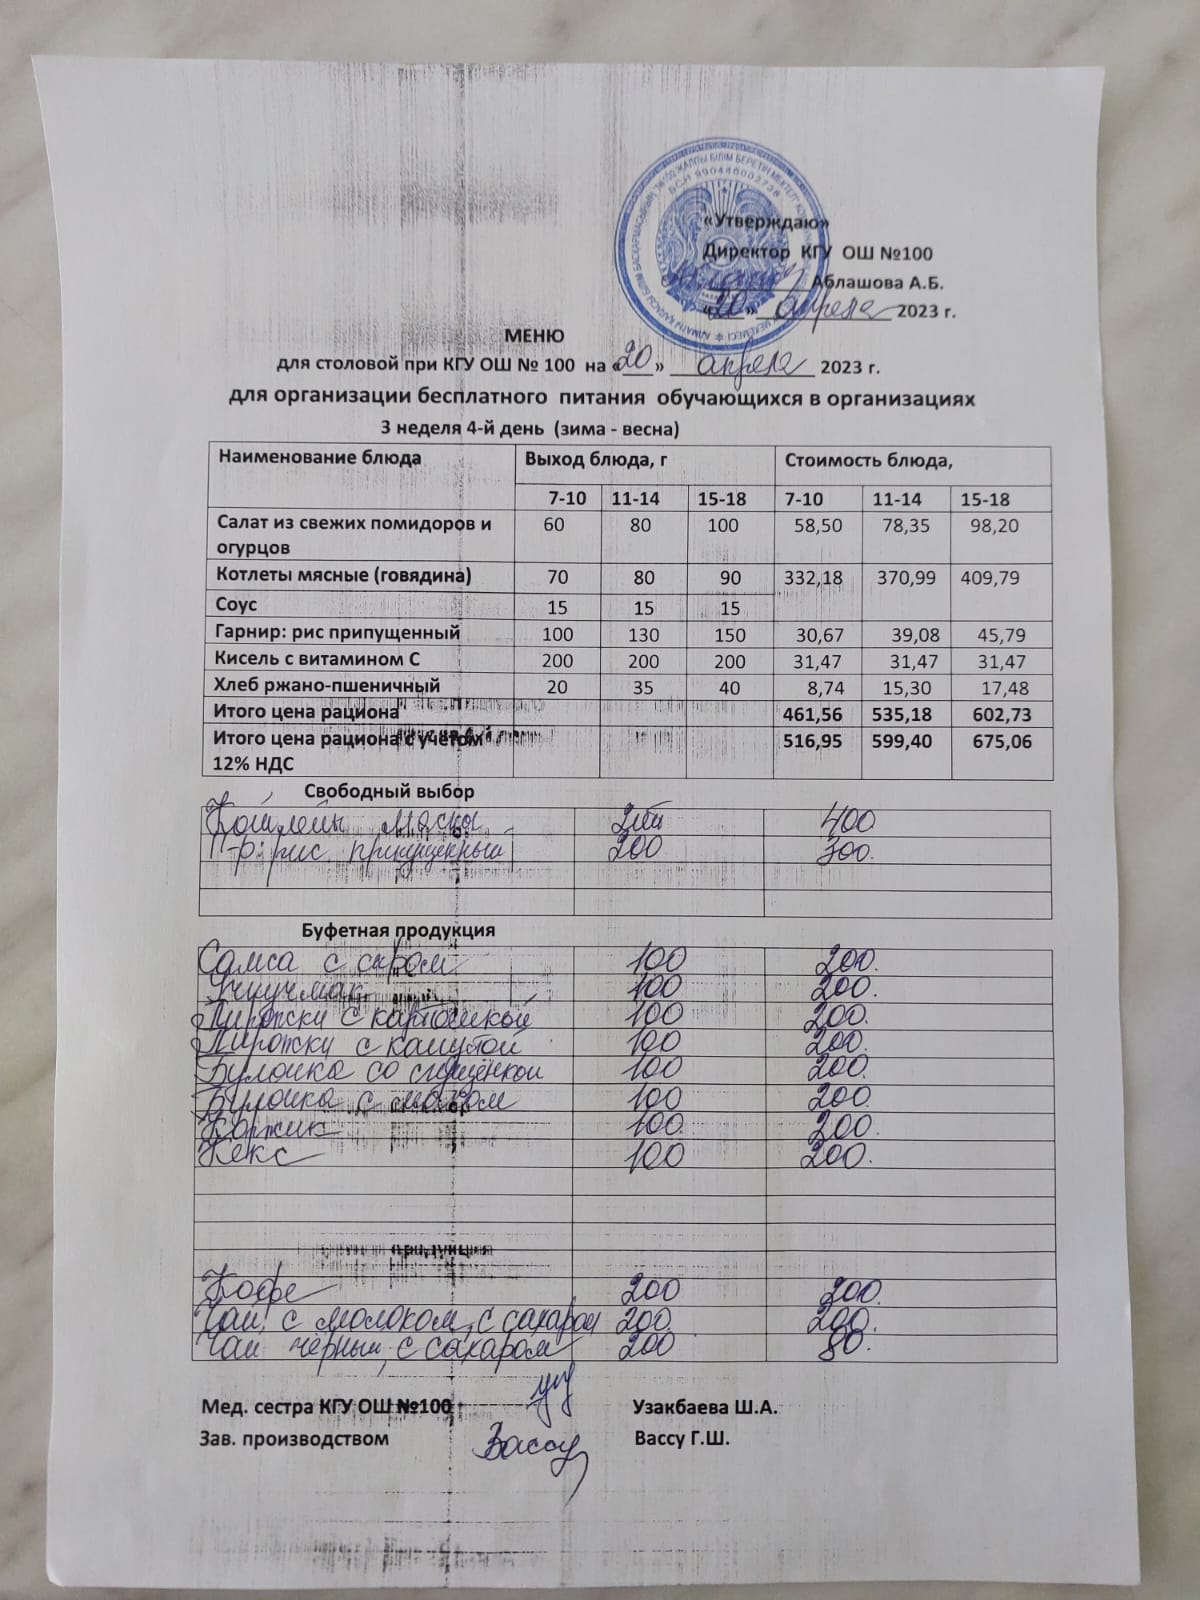 «Утверждаю»
Директор КГУ ОШ №100
Аблашова А.Б.
«20» апреля 2023 г.
МЕНЮ
для столовой при КГУ ОШ № 100 на «20» апреля 2023 г.
для организации бесплатного питания обучающихся в организациях
3 неделя 4-й день (зима - весна)
Наименование блюда Выход блюда, г Стоимость блюда,
7-10 11-14 15-18 7-10 11-14 15-18
Салат из свежих помидоров и 60 80 100 58,50 78,35 98,20
огурцов
Котлеты мясные (говядина) 70 80 90 332,18 370,99 409,79
Соус 15 15 15
Гарнир: рис припущенный 100 130 150 30,67 39,08 45,79
Кисель с витамином С 200 200 200 31,47 31,47 31,47
Хлеб ржано-пшеничный 20 35 40 8,74 15,30 17,48
Итого цена рациона 461,56 535,18 602,73
Итого цена рациона с учетом 516,95 599,40 675,06
12% НДС
Свободный выбор
400
Г-р: рис припущенный 200 300.
Буфетная продукция
Самса с сыром 100 200.
Учпучмак 100 200.
Пирожки с картошкой 100 200.
Пирожки с капустой 100 200.
Булочка со сгущёнкой 100 200.
Булочка с маком 100 200.
Коржик 100 200.
Кекс 100 200.
продукция
Кофе 200 200.
Чай с молоком, с сахаром 200 200.
Чай черный, с сахаром 200 80.
Мед. сестра КГУ ОШ №100 Узакбаева Ш.А.
Зав. производством Вассу Вассу Г.Ш.